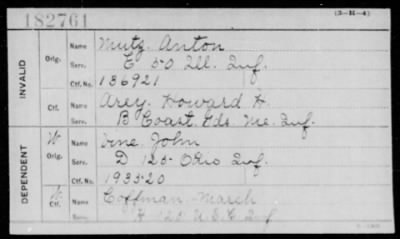 182761
(3-H-4)
INVALID
Orig. Name Mutz Anton
Serv. E 50 Ill. Inf.
Ctf. No. 136921
Ctf. Name Arey Howard H.
B Coast Gds. Me. Inf.
DEPENDENT
W Orig. Name Vine, John
Serv. D 125 Ohio Inf.
Ctf. No. 193520
W Ctf. Name Coffman March
Serv. H 125 U.S.C. Inf